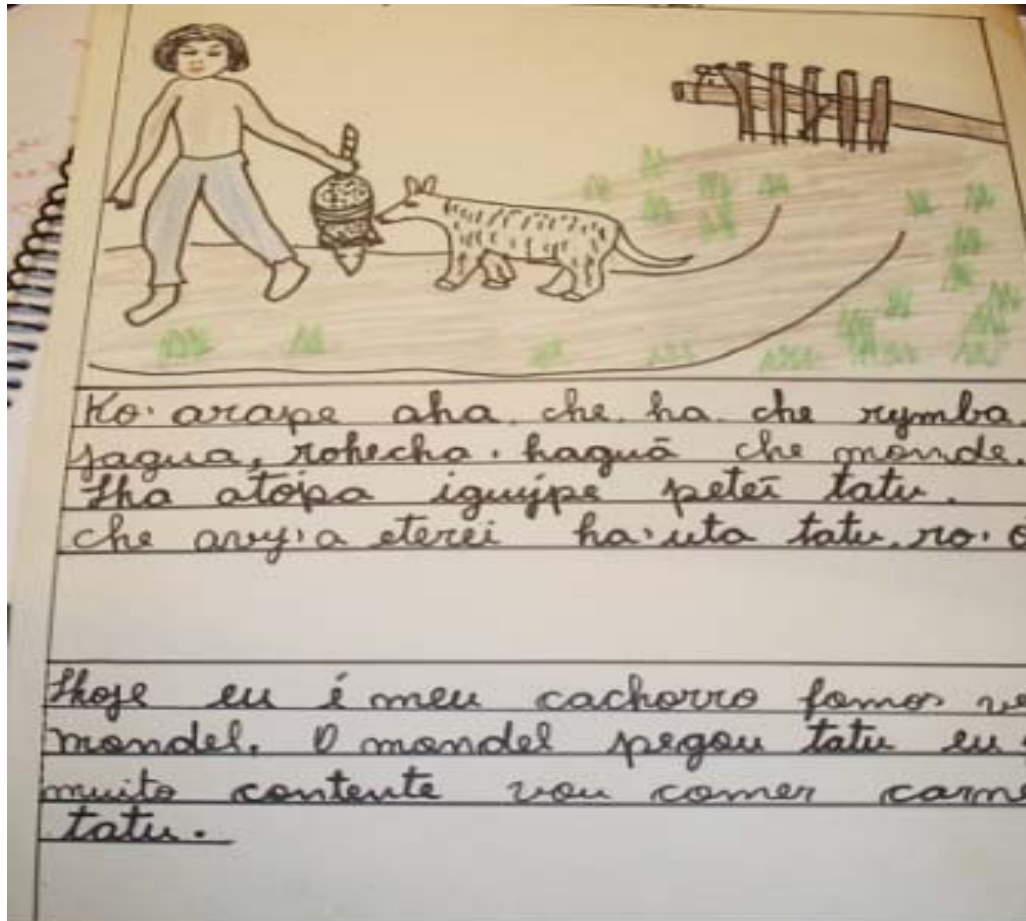 Ko. arape aha. che. ha. che rymba.
jagua, rohecha. haguã che monde.
Hha atopa iguype peteĩ tatu.
che avy,a eterei ha,uta tatu. ro,o
Hhoje eu é meu cachorro fomos ve
mondel. O mondel pegou tatu eu
muito contente vou comer carne
tatu.